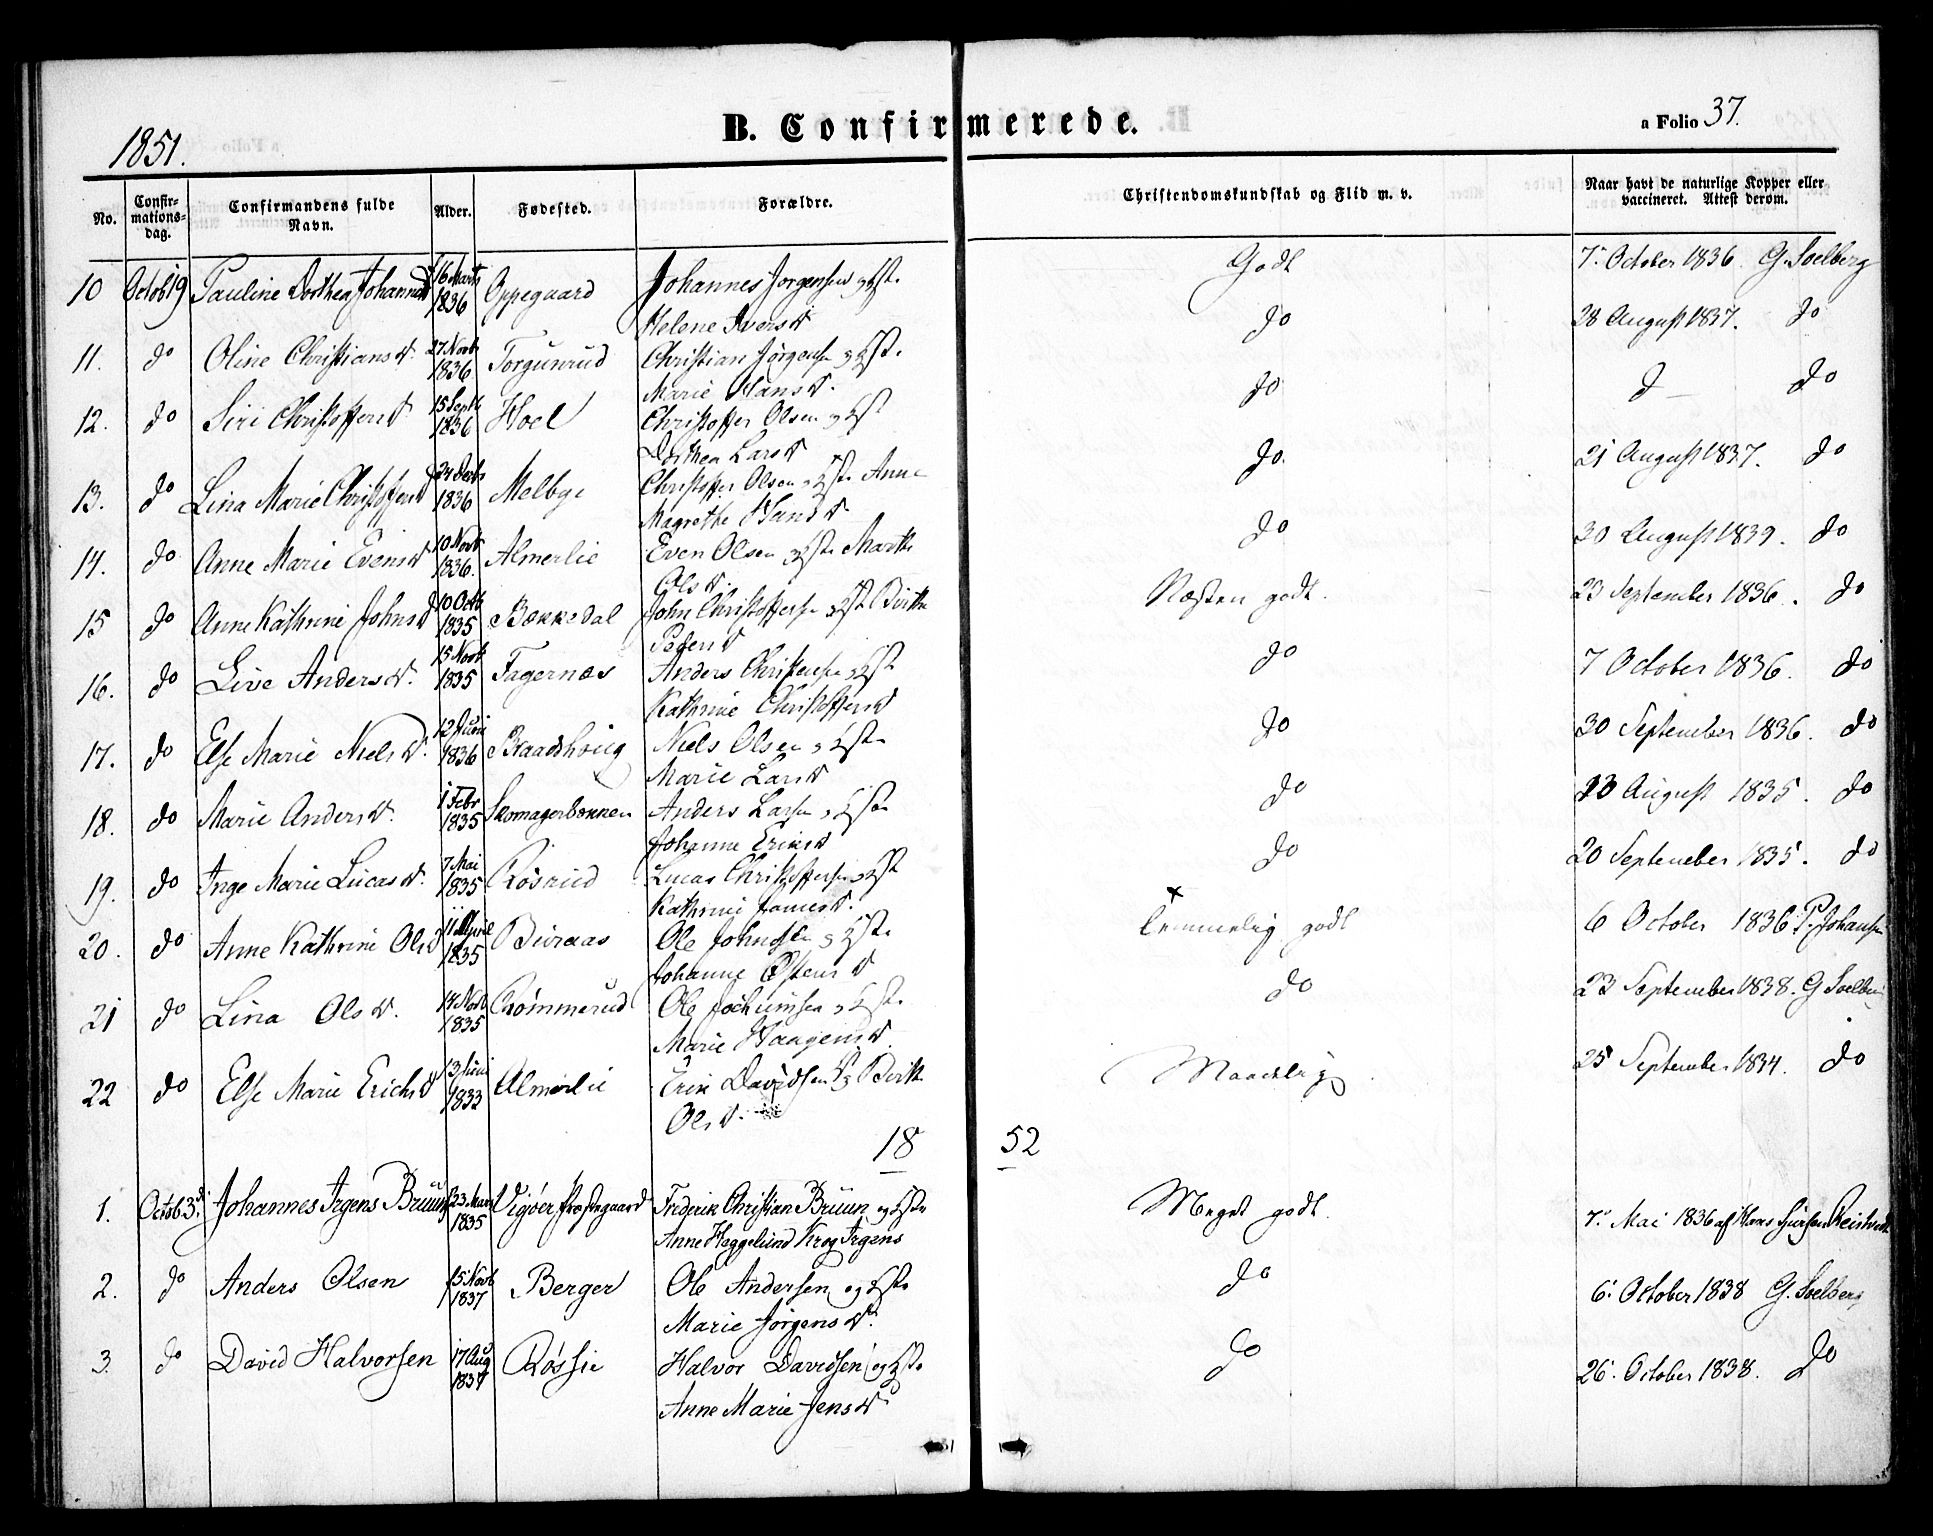 1851.
B. Confirmerede.
a Folio 37.
No. Confirmationsdag. Confirmandens fulde Navn. Alder. Fødested. Forældre. Christendomskundskab og Flid m. v. Naar havt de naturlige Kopper eller vaccineret. Attest derom.
10 Octob 19 Pauline Dorthea Johannesd 16 Marts 1836 Oppegaard Johannes Jørgensen og Hst. Godt 7de October 1836. G. Soelberg
Helene Iversd
11. do Oline Christiansd. 27 Novb 1836 Torgunrud Christian Jørgensen og Hst. do 28 August 1837. do
Marie Hansd.
12. do Siri Christoffersd 15 Septb 1836 Hoel Christoffer Olsen og Hst do d do
Dorthea Larsd
13. do Lina Marie Christoffersd 24 Decbr 1836 Melbye Christoffer Olsen og Hst. Anne do. 21 August 1837. do
Magrethe Hansd.
14. do Anne Marie Evensd 10 Novb 1836. Almerlie Even Olsen og Hst. Marthe do 30 August 1839. do
Olsd.
15 do Anne Kathrine Johnsd 10 Octb 1835 Bækkedal John Christoffersen og Hst Birthe Næsten godt. 23 September 1836. do
Pedersd
16. do Live Andersd. 15 Novb 1835 Fagernæs Anders Christensen og Hst do 7 October 1836. do
Kathrine Christoffersd
17. do Else Marie Nielsd. 12 Juni 1836 Braadhoug Niels Olsen og Hst. do 30 September 1836. do
Marie Larsd
18. do Marie Andersd. 1 Febr 1835 Skomagerbakken Anders Larsen og Hst do 23 August 1835. do
Johanne Eriksd
19. do Inge Marie Lucasd. 7 Mai 1835 Røsrud Lucas Christoffersen og Hst do 20 September 1835. do
Kathrine
20. do Anne Kathrine Olsd 11 April 1835 Buraas Ole Johnsen og Hst. Temmelig godt 6 October 1836 P. Johansen
Johanne Østensd
21 do Lina Olsd. 14 Novb 1835 Rømmerud Ole Jochumsen og Hst. do 23 September 1838. G Soelberg
Marie Haagensd.
22 do Else Marie Erichsd 13 Juni 1833 Almerlie Erik Davidsen og Birthe Maadelig. 25 September 1834. do
Olsd.
18 52
1. Octob 3d. Johannes Irgens Bruun 23 Mars 1835 Vigøer Præstegaard Frederik Christian Bruun og Hst. Meget godt. 7de Mai 1836 af Hans
Anne Heggelund Krog Irgens
2. do Anders Olsen 15 Novb 1837 Berger Ole Andersen og Hst. do 6: October 1838 G. Soelberg
Marie Jørgensd.
3. do David Halvorsen 17 Aug 1837 Røssie Halvor Davidsen og Hst. do 26: October 1838. do
Anne Marie Jensd